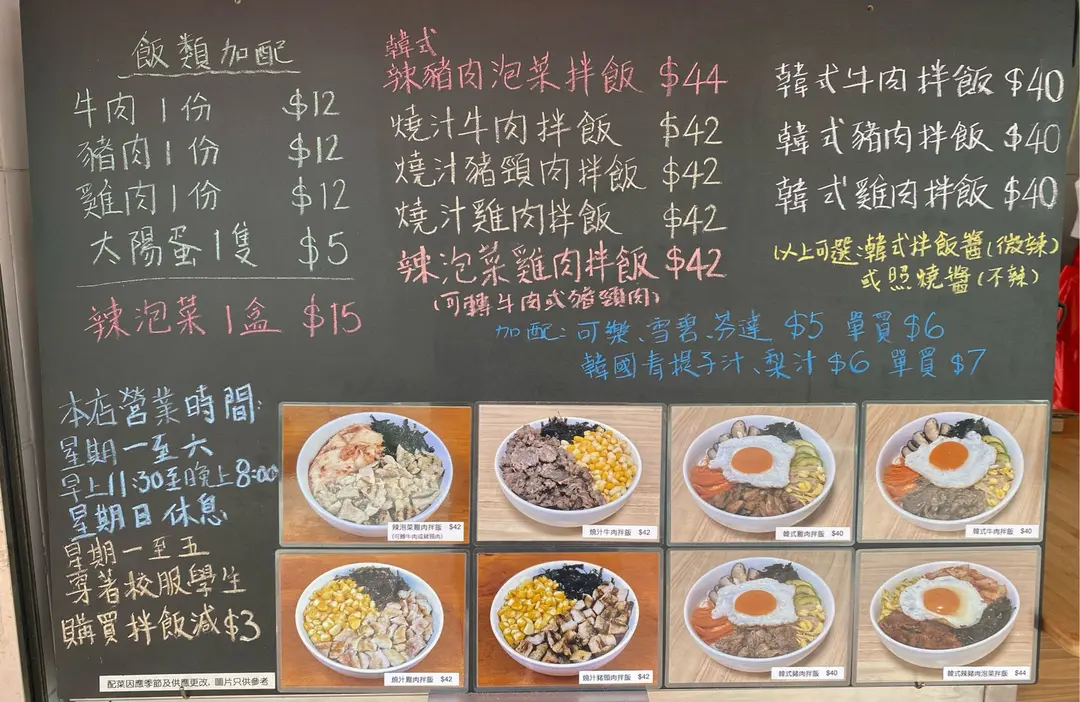 飯類加配
牛肉1份 $12
豬肉1份 $12
雞肉1份 $12
太陽蛋1隻 $5
辣泡菜1盒 $15
韓式
辣豬肉泡菜拌飯 $44
燒汁牛肉拌飯 $42
燒汁豬頸肉拌飯 $42
燒汁雞肉拌飯 $42
辣泡菜雞肉拌飯 $42
(可轉牛肉或豬頸肉)
韓式牛肉拌飯 $40
韓式豬肉拌飯 $40
韓式雞肉拌飯 $40
以上可選:韓式拌飯醬(微辣)
或照燒醬(不辣)
加配:可樂、雪碧、芬達 $5 單買 $6
韓國青提子汁、梨汁 $6 單買 $7
本店營業時間:
星期一至六
早上11:30至晚上8:00
星期日休息
星期一至五
穿著校服學生
購買拌飯減$3
配菜因應季節及供應更改, 圖片只供參考
辣泡菜雞肉拌飯 $42
(可轉牛肉或豬頸肉)
燒汁牛肉拌飯 $42
韓式雞肉拌飯 $40
韓式牛肉拌飯 $40
燒汁雞肉拌飯 $42
燒汁豬頸肉拌飯 $42
韓式豬肉拌飯 $40
韓式辣豬肉泡菜拌飯 $44